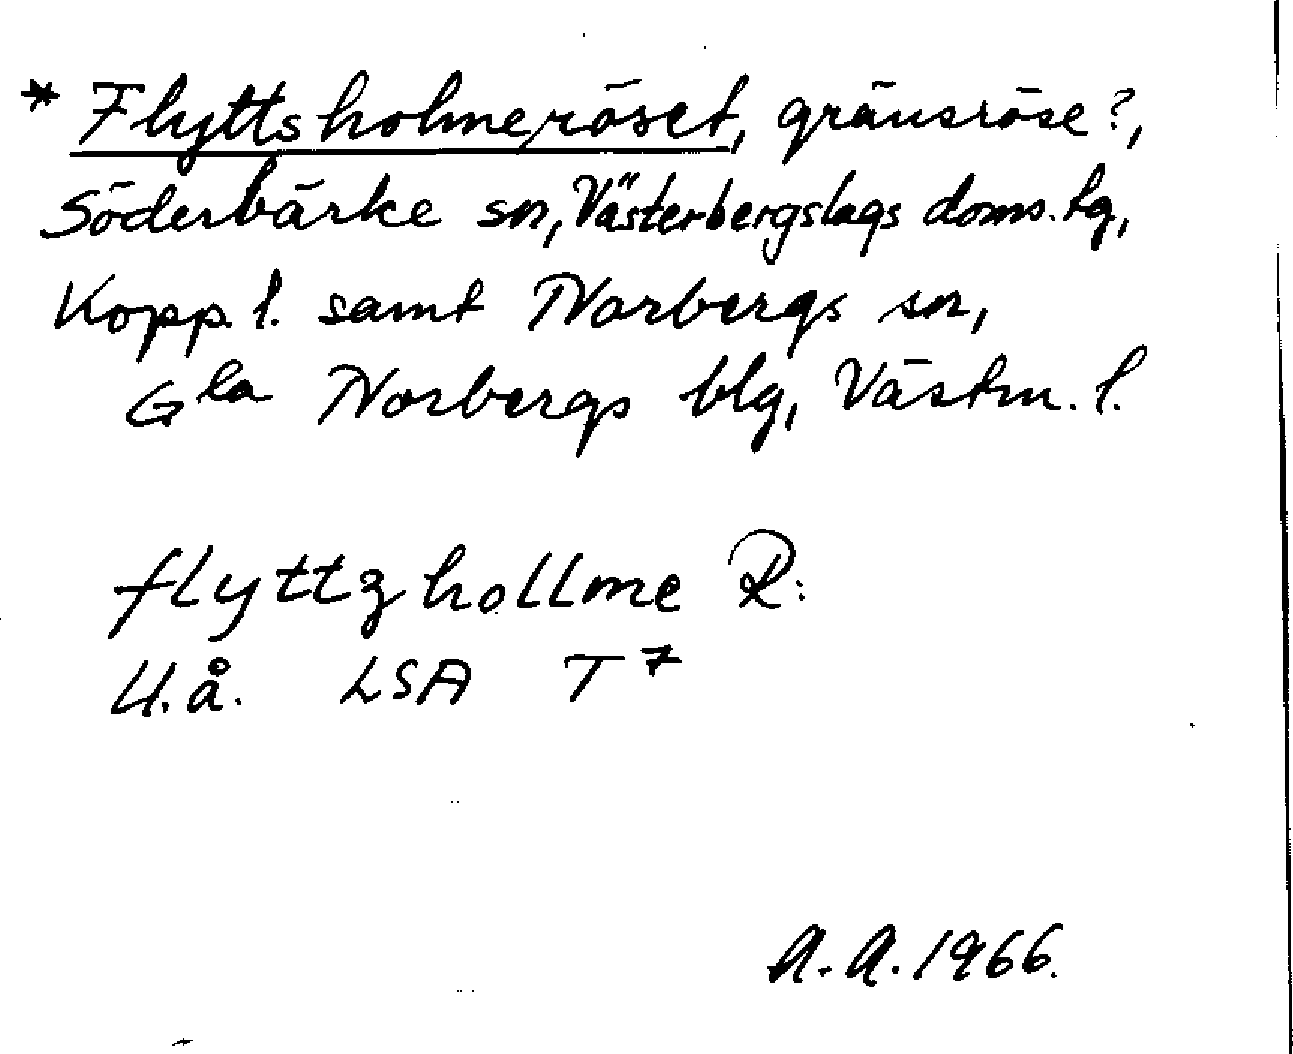 * Flyttsholmeröset, gränsröse?,
Söderbärke sn, Västerbergslags doms. tg,
Kopp. l. samt Norbergs sn,
Gla Norbergs blg, Västm. l.
flyttzhollme R:
U.å. LSA T7
A.A. 1966.